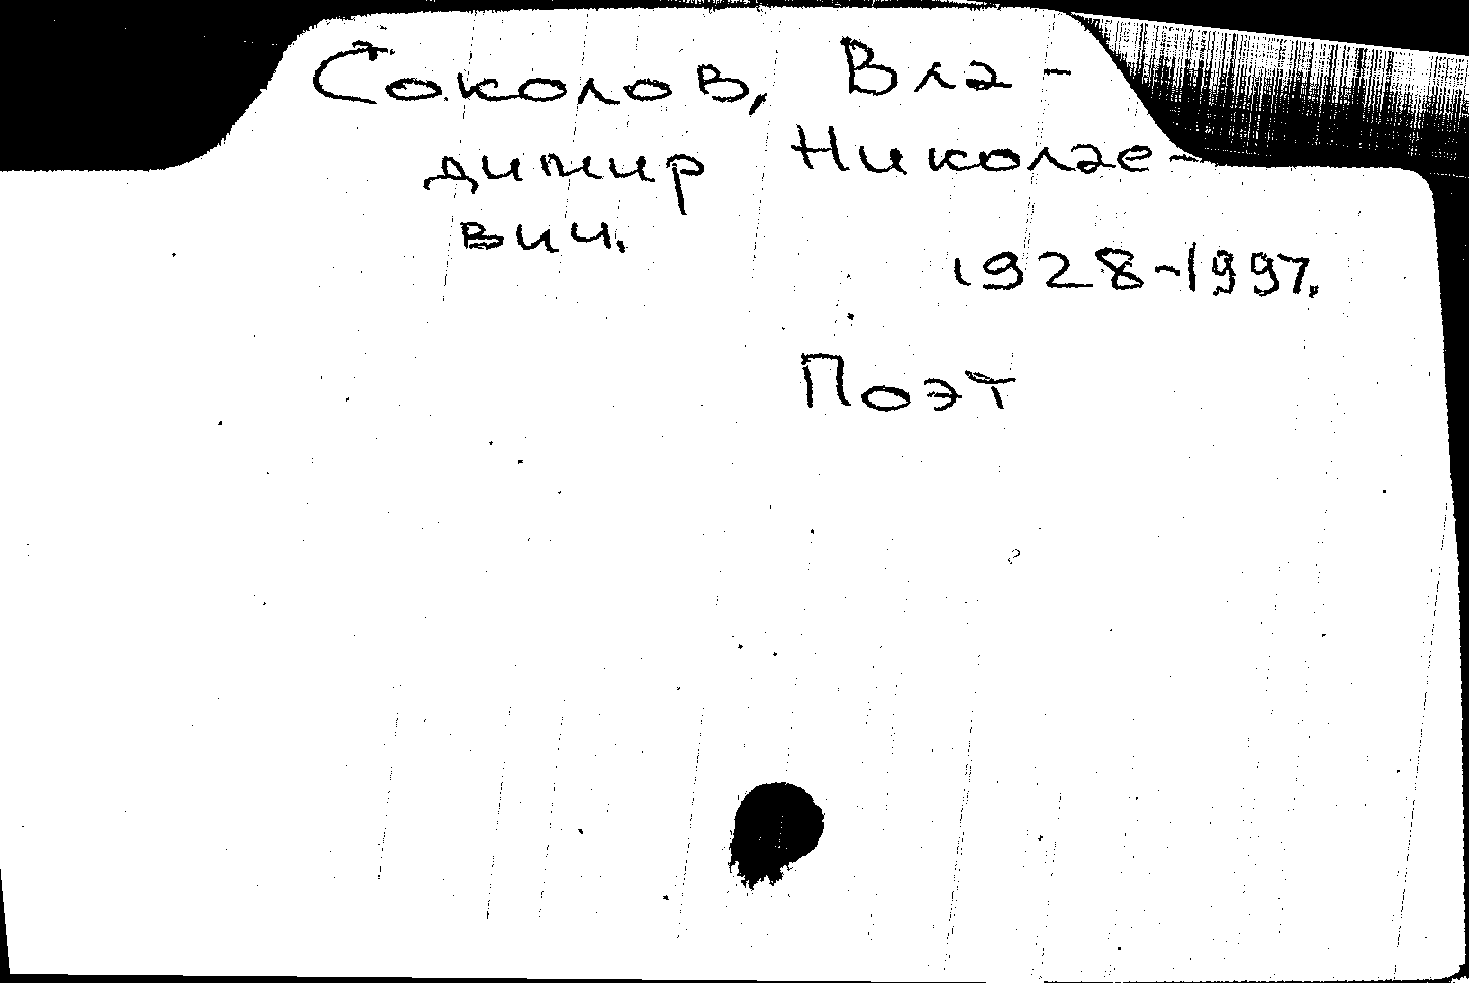 Соколов, Вла-
димир Николае-
вич.
1928-1997.
Поэт